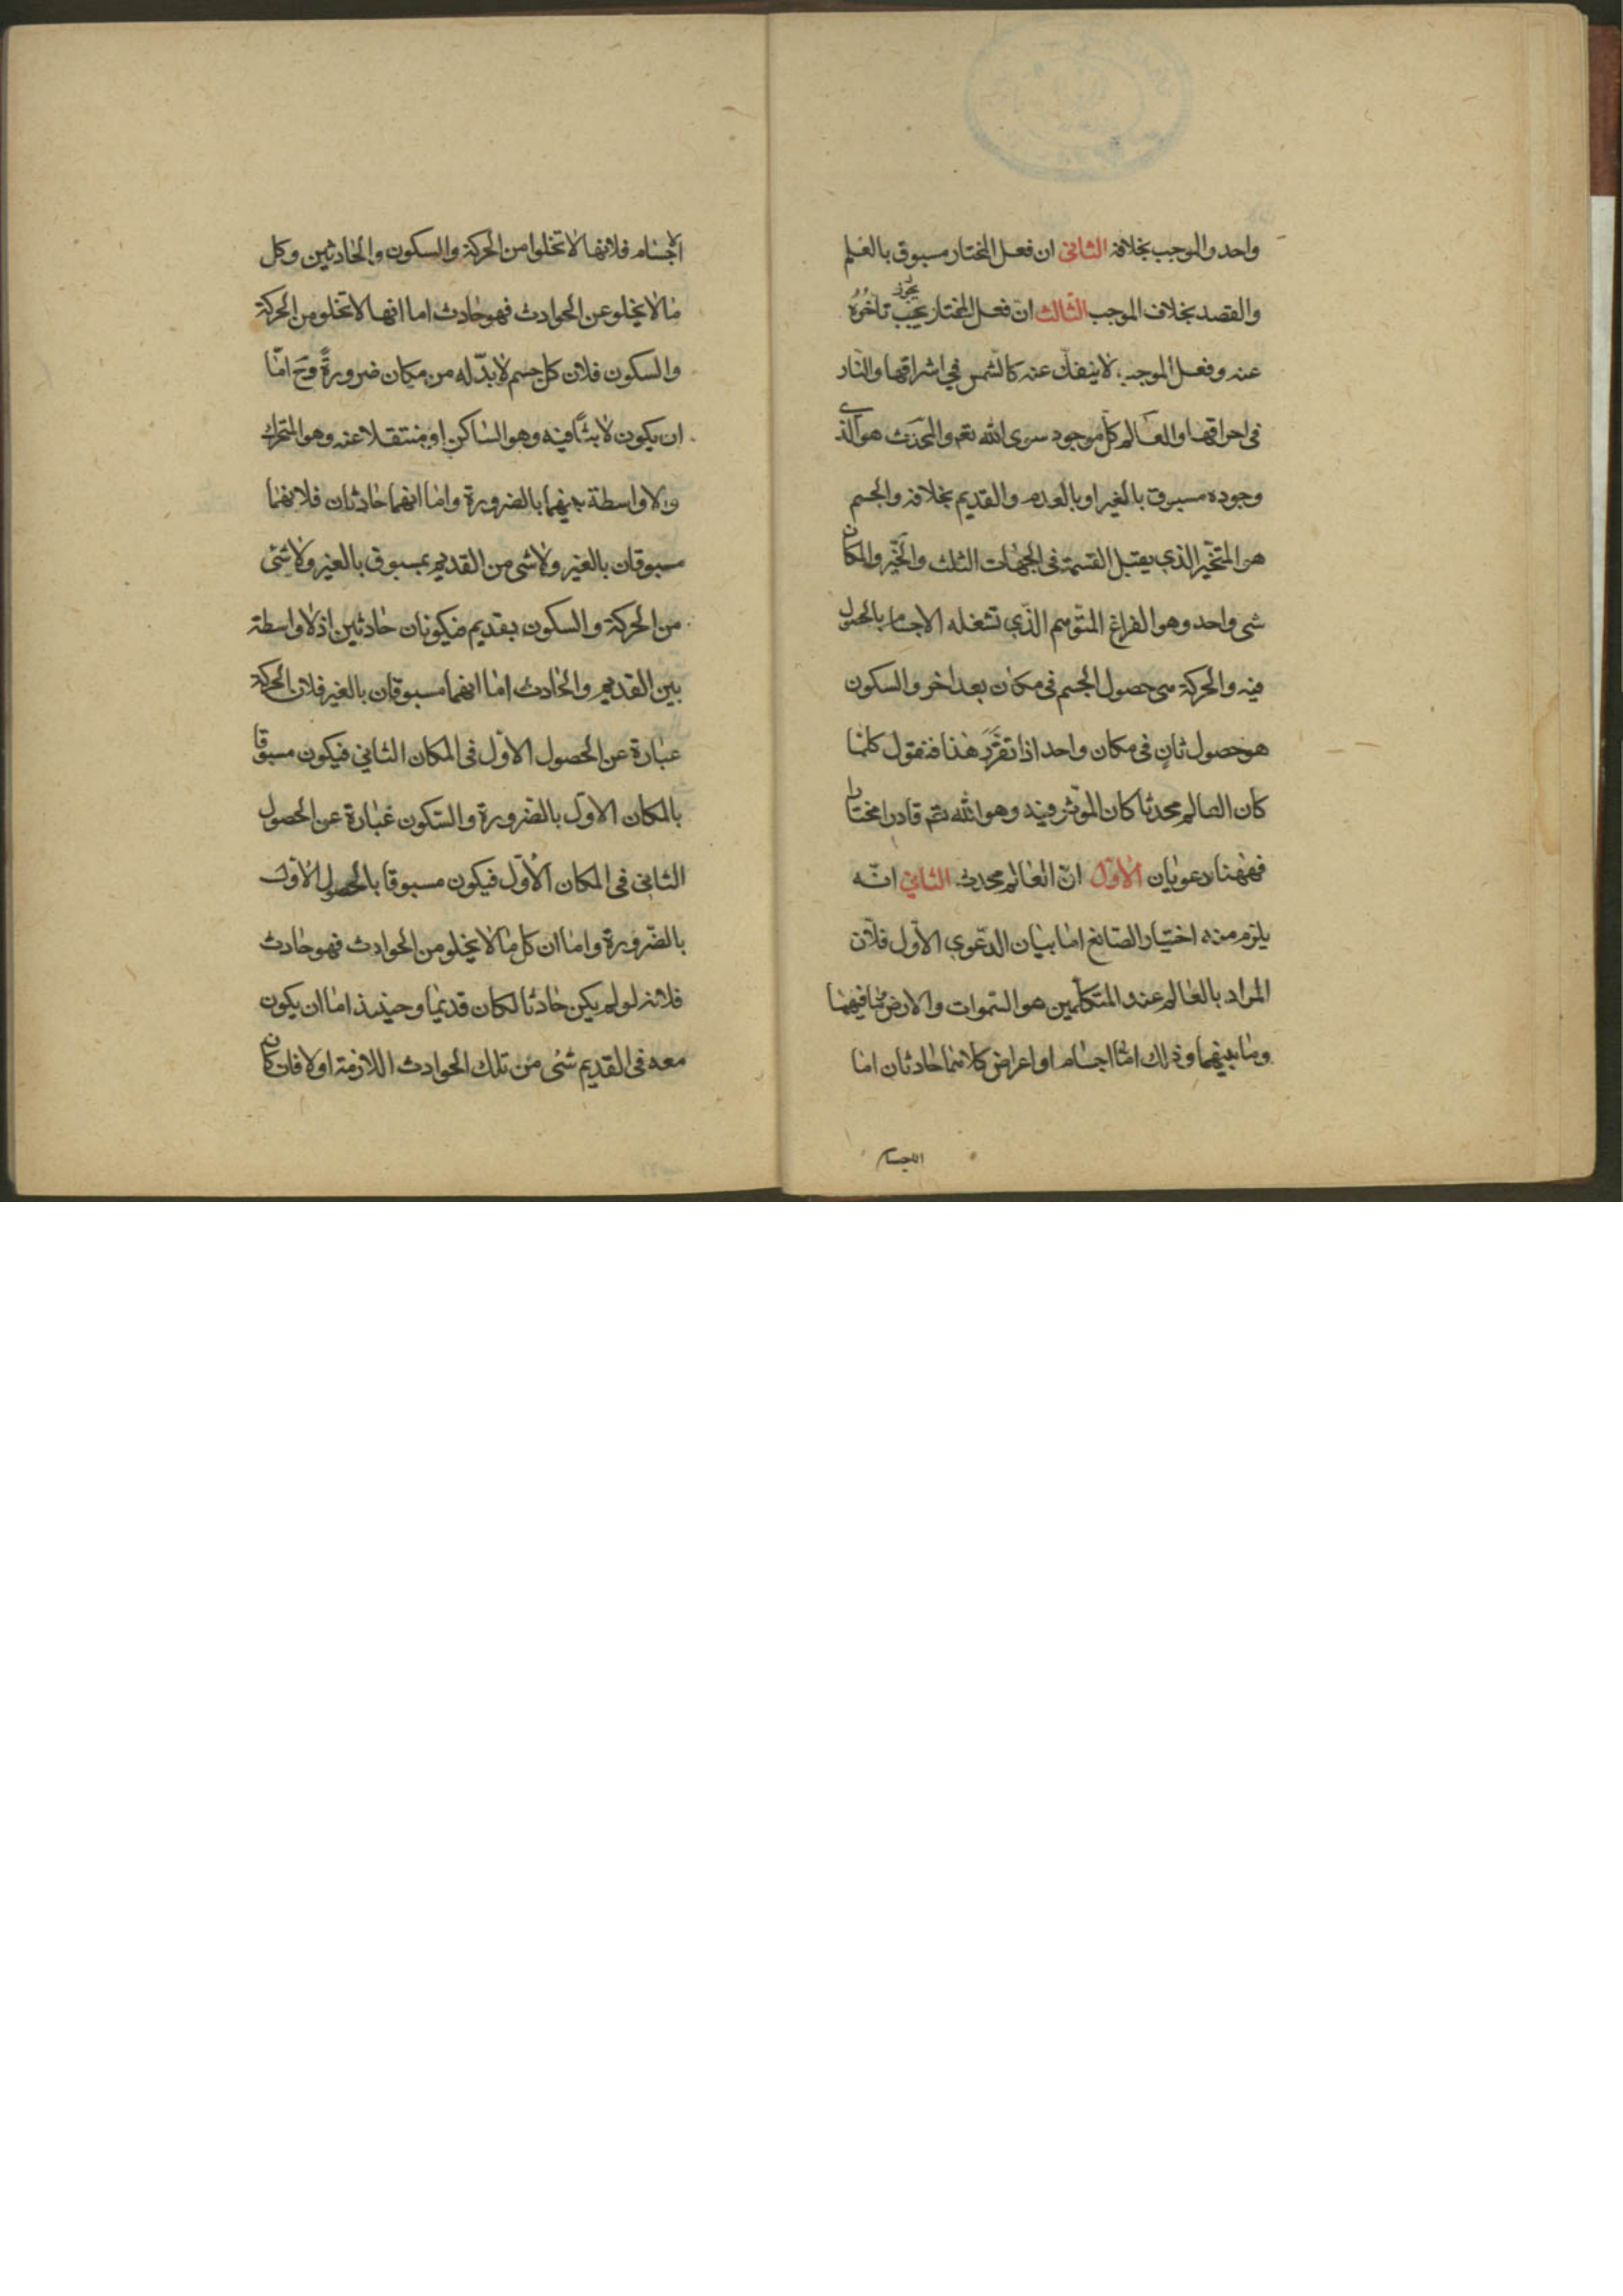 واحد والموجب بخلافه الثانى ان فعل المختار مسبوق بالعلم
والقصد بخلاف الموجب الثالث ان فعل المختار يجب يجوز تأخره
عنه وفعل الموجب لا ينفك عنه كالشمس في اشراقها والنار
فى احراقها والعالم كل موجود سوى الله تعم والمحدث هو الذى
وجوده مسبوق بالغير او بالعدم والقديم بخلافه والجسم
هو المتحيز الذي يقبل القسمة فى الجهات الثلث والحيز والمكان
شى واحد وهو الفراغ المتوهم الذي تشغله الاجسام بالحصول
فيه والحركة هى حصول الجسم فى مكان بعد اخر والسكون
هو حصول ثان فى مكان واحد اذا تقرر هذا فنقول كلما
كان العالم محدثا كان الموثر فيه وهو الله تعم قادرا مختارا
فههنا دعويان الاول ان العالم محدث الثاني انه
يلزم منه اختيار الصانع اما بيان الدعوى الاول فلان
المراد بالعالم عند المتكلمين هو السموات والارض وما فيهما
وما بينهما وذلك اما اجسام او اعراض كلاهما حادثان اما
الاجسام
الاجسام فلانها لا تخلوا من الحركة والسكون والحادثين وكل
ما لا يخلو عن الحوادث فهو حادث اما انها لا تخلو من الحركة
والسكون فلان كل جسم لا بد له من مكان ضرورة وح اما
ان يكون لابثا فيه وهو الساكن او منتقلا عنه وهو المتحرك
ولا واسطة بينهما بالضرورة واما انهما حادثان فلانهما
مسبوقان بالغير ولا شى من القديم بمسبوق بالغير ولا شئى
من الحركة والسكون بقديم فيكونان حادثين اذ لا واسطة
بين القديم والحادث اما انهما مسبوقان بالغير فلان الحركة
عبارة عن الحصول الاول فى المكان الثاني فيكون مسبوقا
بالمكان الاول بالضرورة والسكون عبارة عن الحصول
الثانى فى المكان الاول فيكون مسبوقا بالحصول الاول
بالضرورة واما ان كل ما لا يخلو من الحوادث فهو حادث
فلانه لو لم يكن حادثا لكان قديما وحينئذ اما ان يكون
معه فى القديم شئى من تلك الحوادث اللازمة او لا فان كان